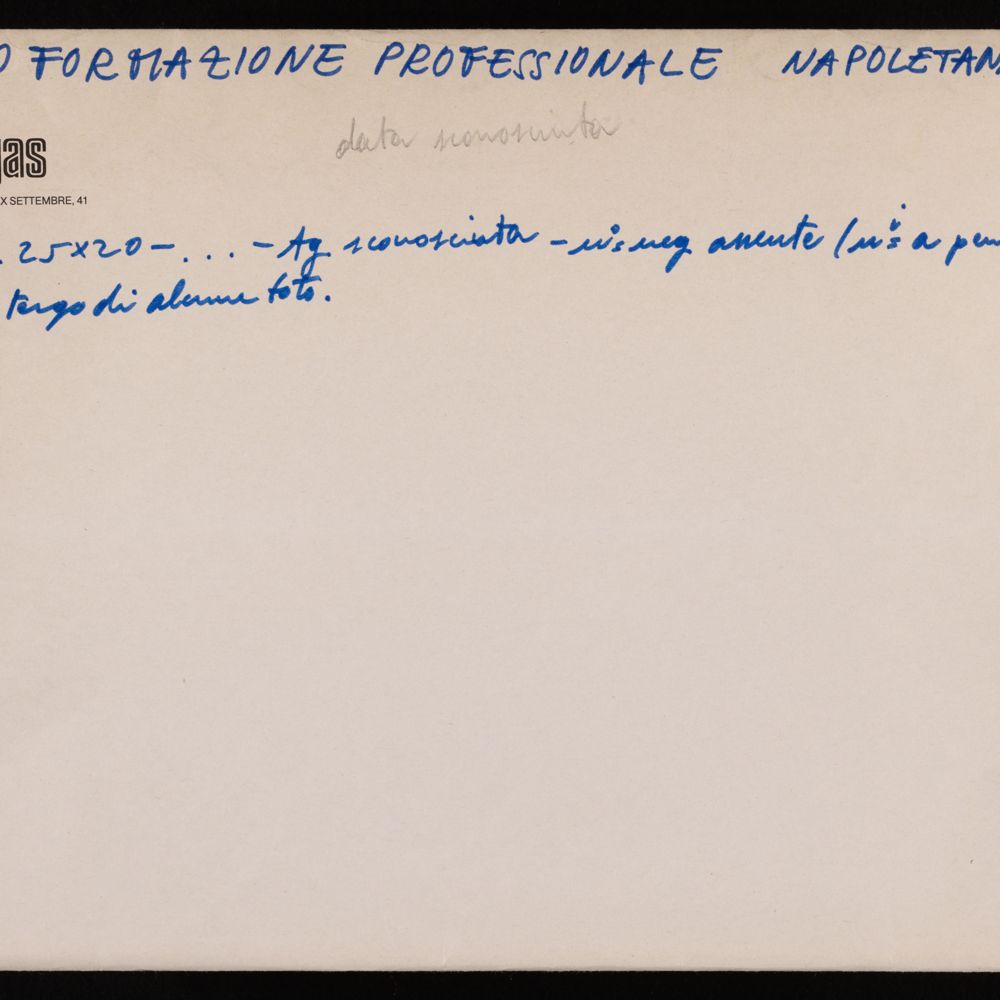 O FORMAZIONE PROFESSIONALE NAPOLETAN
data sconosciuta
gas
X SETTEMBRE, 41
. 25x20 - ... - Ag sconosciuta - n° neg assente (n° a pen
tergo di alcune foto.